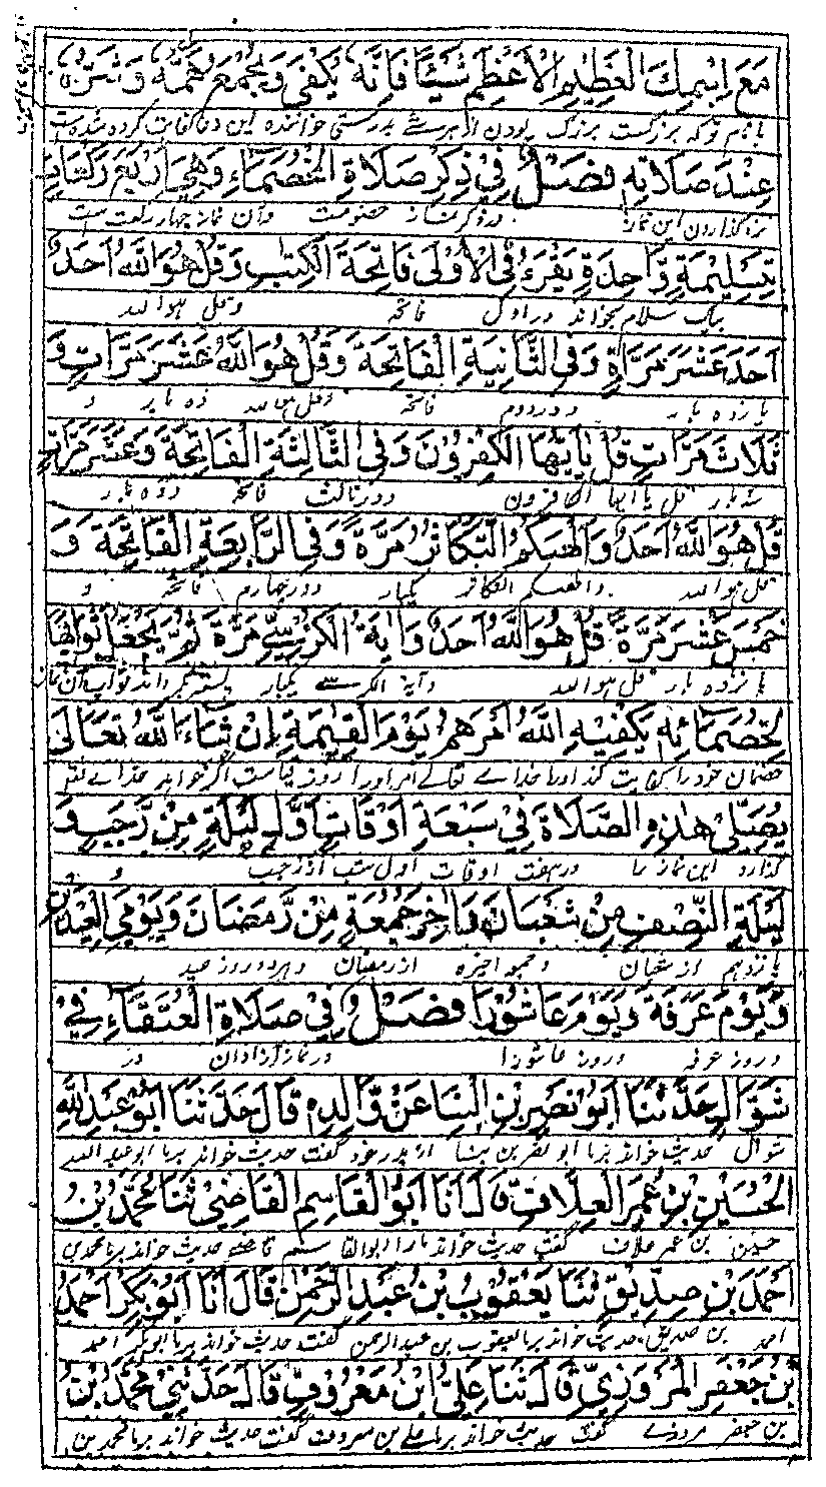 مَعَ اسْمِكَ الْعَظِيْمِ الْاَعْظَمِ شَيْئًا فَاِنَّهُ يَكْفِيْ وَيُجْمَعُ هَمَّهُ
با نام تو که بزرگست بزرگ این دعا کفایت کرده شده است
عِنْدَ صَلَاتِهِ فَصْلٌ فِيْ ذِكْرِ صَلَاةِ الْخُصَمَاءِ وَهِيَ اَرْبَعُ رَكْعَاتٍ
نزد گذاردن این نماز در ذکر نماز خصومت و آن نماز چهار رکعت است
بِتَسْلِيْمَةٍ وَّاحِدَةٍ يَقْرَءُ فِي الْاُوْلٰى فَاتِحَةَ الْكِتٰبِ وَقُلْ هُوَ اللّٰهُ اَحَدٌ
بیک سلام بخواند در اول فاتحه و قل هو الله
اَحَدَ عَشَرَ مَرَّاةٍ وَفِي الثَّانِيَةِ الْفَاتِحَةَ وَقُلْ هُوَ اللّٰهُ عَشَرَ مَرَّاتٍ وَ
یازده بار و در دوم فاتحه و قل هو الله ده بار و
ثَلَاثَ مَرَّاتٍ قُلْ يٰاَيُّهَا الْكٰفِرُوْنَ وَفِي الثَّالِثَةِ الْفَاتِحَةَ وَعَشَرَ مَرَّاتٍ
سه بار قل یا ایها الکافرون و در ثالث فاتحه و ده بار
قُلْ هُوَ اللّٰهُ اَحَدٌ وَاَلْهٰىكُمُ التَّكَاثُرُ مَرَّةً وَفِي الرَّابِعَةِ الْفَاتِحَةَ وَ
قل هو الله و الهیکم التکاثر یکبار و در چهارم فاتحه و
خَمْسَ عَشَرَ مَرَّةً قُلْ هُوَ اللّٰهُ اَحَدٌ وَاٰيَةَ الْكُرْسِيِّ مَرَّةً ثُمَّ يَجْعَلُ ثَوَابَهَا
پانزده بار قل هو الله و آیة الکرسی یکبار پستر بگرداند ثواب آن نماز
لِخُصَمَائِهِ يَكْفِيْهِ اللّٰهُ اَمْرَهُمْ يَوْمَ الْقِيٰمَةِ اِنْ شَاءَ اللّٰهُ تَعَالٰى
خصمان خود را کفایت کند او را خدای تعالی امر او را روز قیامت اگر خواهد خدای تعالی
يُصَلِّيْ هٰذِهِ الصَّلَاةَ فِيْ سَبْعَةِ اَوْقَاتٍ اَوَّلِ لَيْلَةٍ مِنْ رَّجَبٍ وَ
گذارد این نماز را در هفت اوقات اول شب از رجب و
لَيْلَةِ النِّصْفِ مِنْ شَعْبَانَ وَاٰخِرِ جُمُعَةٍ مِنْ رَّمَضَانَ وَيَوْمَيِ الْعِيْدَيْنِ
پانزدهم از شعبان و جمعه اخیره از رمضان و هر دو روز عید
وَيَوْمَ عَرَفَةَ وَيَوْمَ عَاشُوْرَا فَصْلٌ فِيْ صَلَاةِ الْعُتَقَاءِ فِيْ
و روز عرفه و روز عاشورا در نماز آزادان در
شَوَّالٍ حَدَّثَنَا اَبُوْ نَصْرِ بْنِ الْبَنَا عَنْ وَّالِدِهِ قَالَ حَدَّثَنَا اَبُوْ عَبْدِ اللّٰهِ
شوال حدیث خواند بر ما ابو نصر بن بنا از پدر خود گفت حدیث خواند بر ما ابو عبد الله
الْحُسَيْنِ بْنِ عُمَرَ الْعِلَّافِ قَالَ اَنَا اَبُو الْقَاسِمِ الْقَاضِيْ ثَنَا مُحَمَّدُ بْنُ
حسین بن عمر علاف گفت حدیث خواند ما را ابو القاسم قاضی حدیث خواند بر ما محمد بن
اَحْمَدَ بْنِ صِدِّيْقٍ ثَنَا يَعْقُوْبُ بْنُ عَبْدِ الرَّحْمٰنِ قَالَ اَنَا اَبُوْ بَكْرٍ اَحْمَدُ
احمد بن صدیق حدیث خواند بر ما یعقوب بن عبد الرحمن گفت حدیث خواند بر ما ابو بکر احمد
بْنُ جَعْفَرِ الْمَرْوَزِيُّ قَالَ ثَنَا عَلِيُّ ابْنُ مَعْرُوْفٍ قَالَ حَدَّثَنِيْ مُحَمَّدُ بْنُ
بن جعفر مروزی گفت حدیث خواند بر ما علی بن معروف گفت حدیث خواند بر ما محمد بن